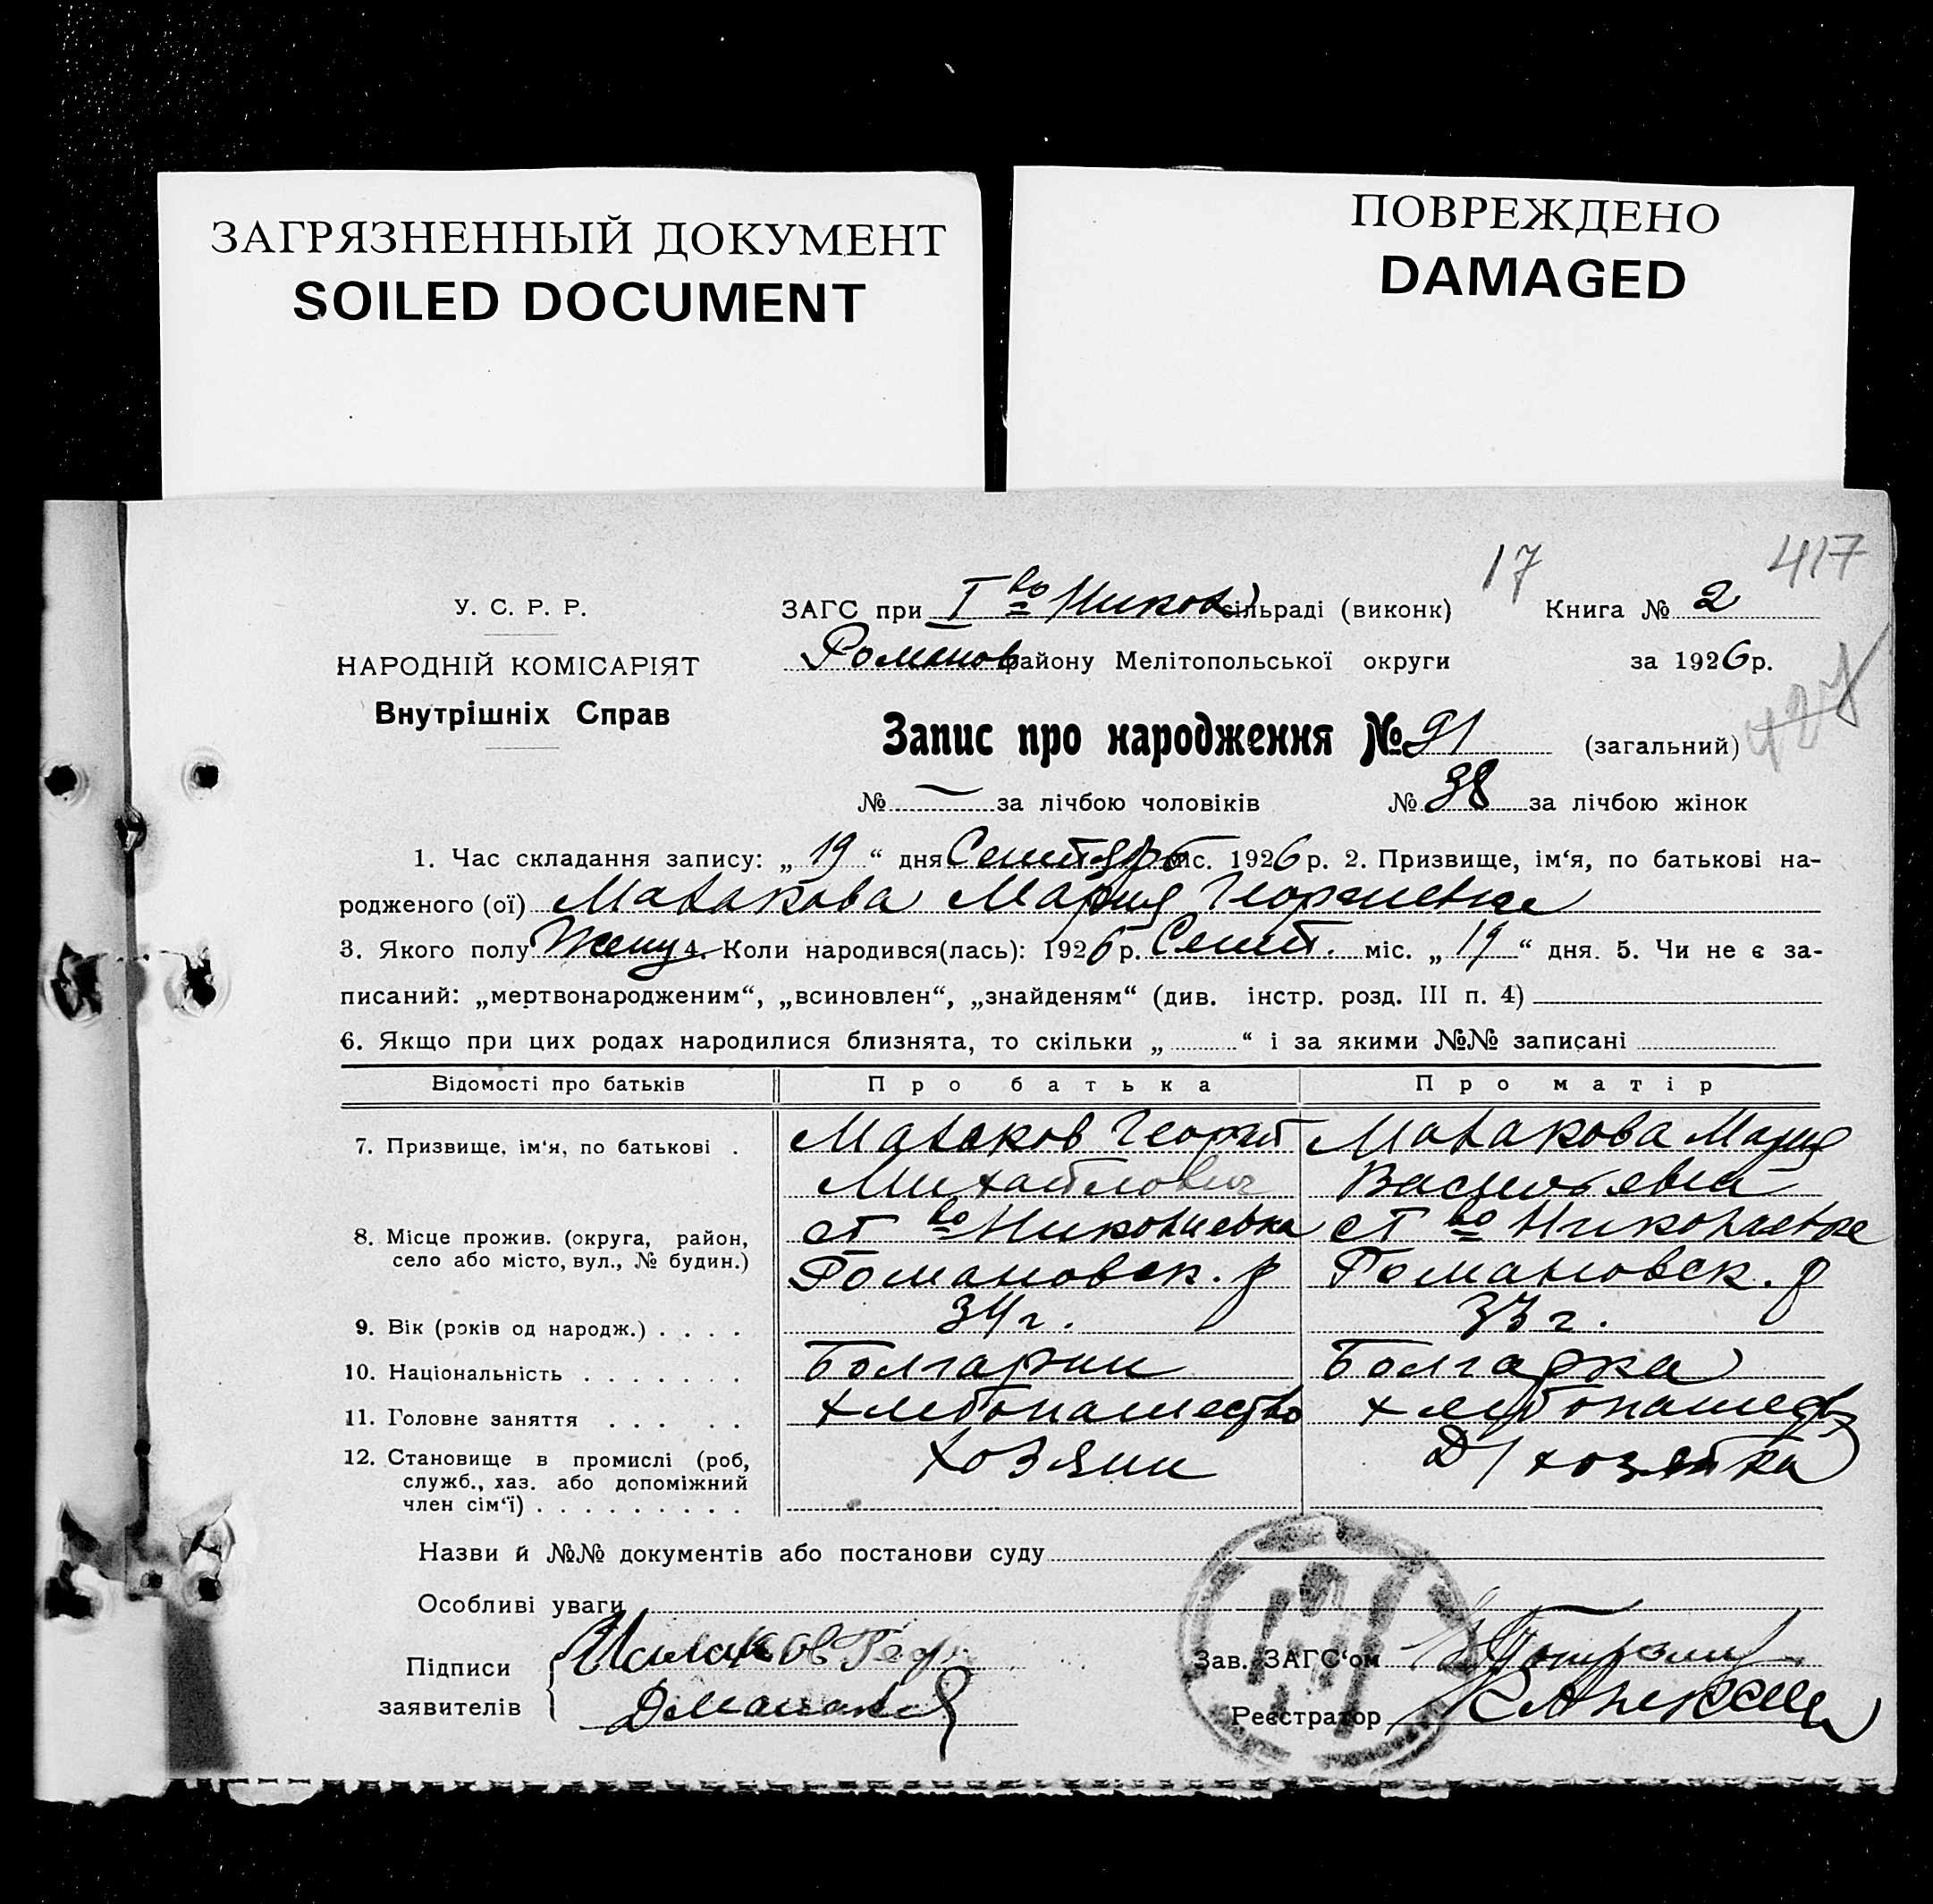 ЗАГРЯЗНЕННЫЙ ДОКУМЕНТ
SOILED DOCUMENT
ПОВРЕЖДЕНО
DAMAGED
17 417
У. С. Р. Р.
НАРОДНІЙ КОМІСАРІЯТ
Внутрішніх Справ
ЗАГС при І во Никол сільраді (виконк) Книга № 2
Романов району Мелітопольської округи за 1926 р.
Запис про народження № 91 (загальний)
№ — за лічбою чоловіків № 38 за лічбою жінок
1. Час складання запису: „ 19 “ дня Сентября міс. 1926 р. 2. Призвище, ім‘я, по батькові на-
родженого (ої) Малакова Мария Георгиевна
3. Якого полу Жену 4. Коли народився(лась): 1926 р. Сент. міс. „ 19 “ дня. 5. Чи не є за-
писаний: „мертвонародженим“, „всиновлен“, „знайденям“ (див. інстр. розд. III п. 4)
6. Якщо при цих родах народилися близнята, то скільки „ “ і за якими №№ записані
Відомості про батьків Про батька Про матір
7. Призвище, ім‘я, по батькові . Малаков Георгий Малакова Мария
Михайлович Васильевна
8. Місце прожив. (округа, район, село або місто, вул., № будин.) ст во Николаевка ст во Николаевка
Романовск. р Романовск. р
9. Вік (років од народж.) . . . . 34 г. 33 г.
10. Національність . . . . . . . Болгарин Болгарка
11. Головне заняття . . . . . хлебопашество хлебопашеств
12. Становище в промислі (роб, служб., хаз. або допоміжний член сім‘ї) . . . . . . . . . хозяин Д/хозяйка
Назви й №№ документів або постанови суду
Особливі уваги
Підписи заявителів Малаков Геор
Зав. ЗАГС‘ом
Реєстратор